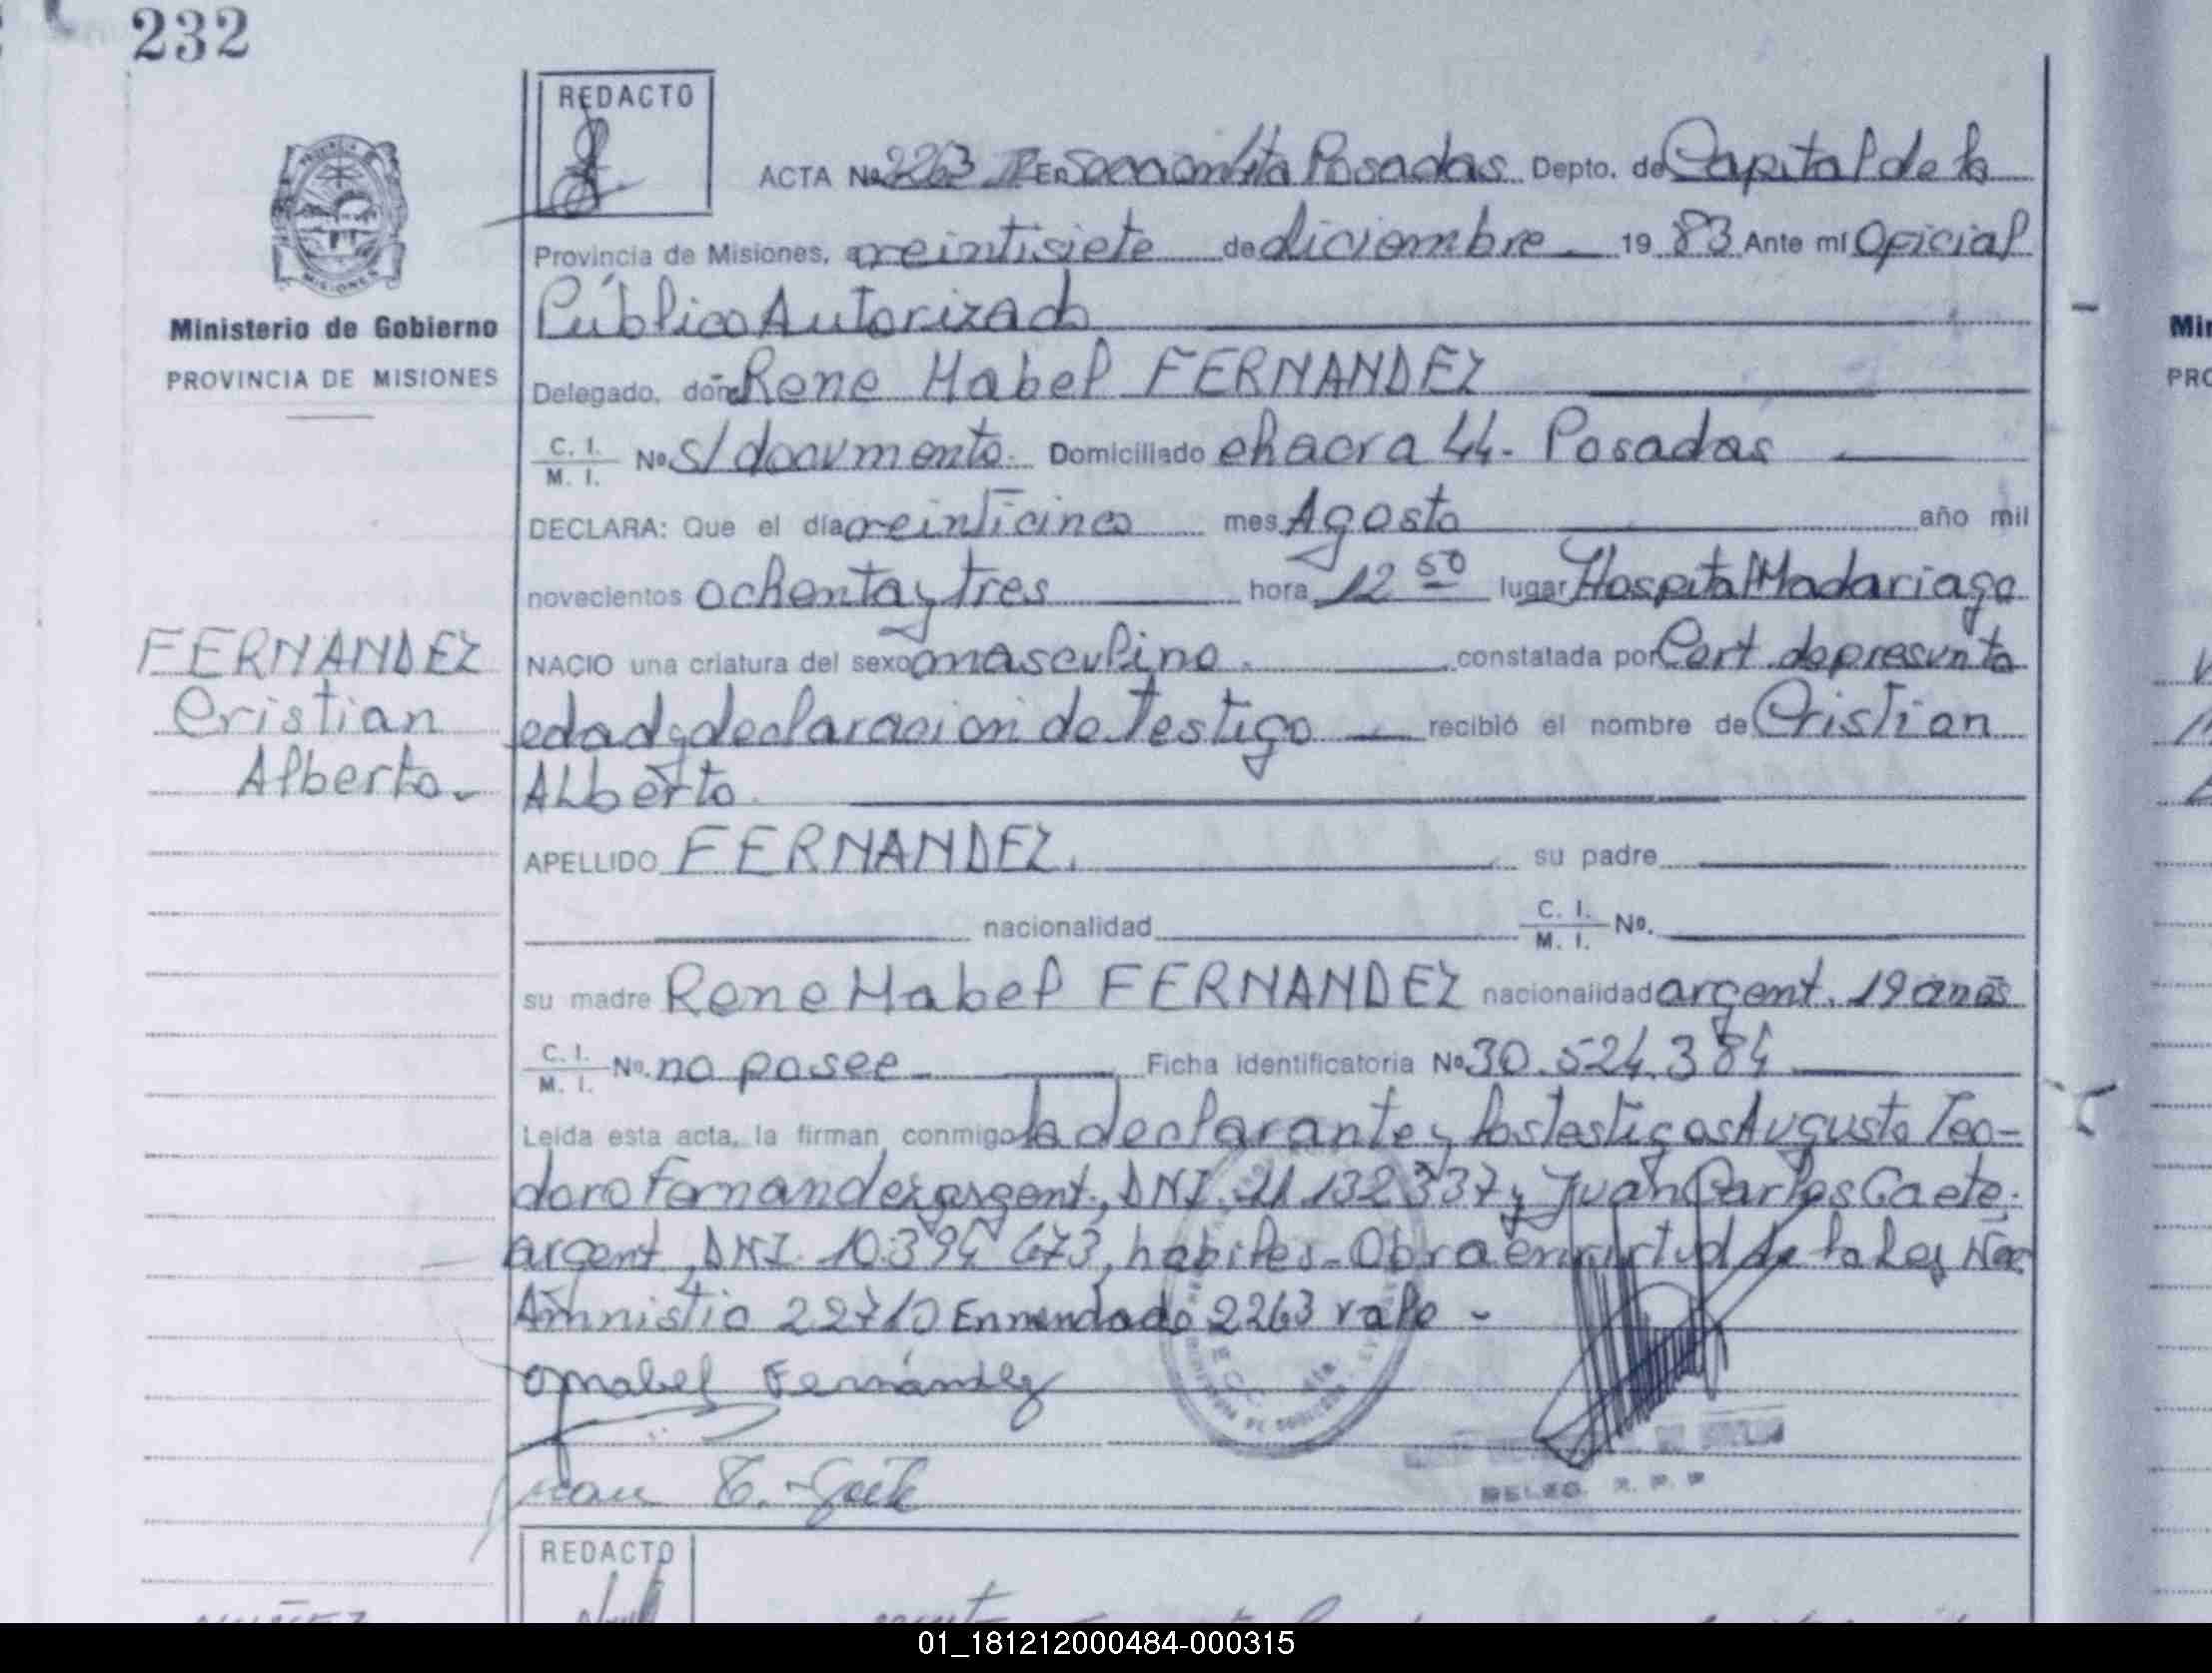 232
REDACTO
ACTA Nº 2263 En Posadas Depto. de Capital de la
Provincia de Misiones, a veintisiete de diciembre 19 83 Ante mí Oficial
Público Autorizado
Ministerio de Gobierno
PROVINCIA DE MISIONES
Delegado, doñ Rene Mabel FERNANDEZ
C. I. M. I. Nº s/documento. Domiciliado chacra 44- Posadas
DECLARA: Que el día veinticinco mes Agosto año mil
novecientos ochenta y tres hora 12 50 lugar Hospital Madariaga
NACIO una criatura del sexo masculino. constatada por Cert. de presunta
edad y declaracion de testigo recibió el nombre de Cristian
Alberto.
FERNANDEZ
Cristian
Alberto.
APELLIDO FERNANDEZ. su padre
nacionalidad C. I. M. I. Nº.
su madre Rene Mabel FERNANDEZ nacionalidad argent. 19 anos
C. I. M. I. Nº. no posee Ficha identificatoria Nº 30.524.384
Leída esta acta, la firman conmigo la declarante y los testigos Augusto Teo-
doro Fernandez, argent., DNI. 11.132.337 y Juan Carlos Gaete.
argent, DNI. 10.394 673, habiles- Obra en virtud de la Ley Nac
Amnistia 22710 Enmendado 2263 vale -
Mabel Fernández
Juan C. Gaete
DELEG. R. P. P
REDACTO
01_181212000484-000315